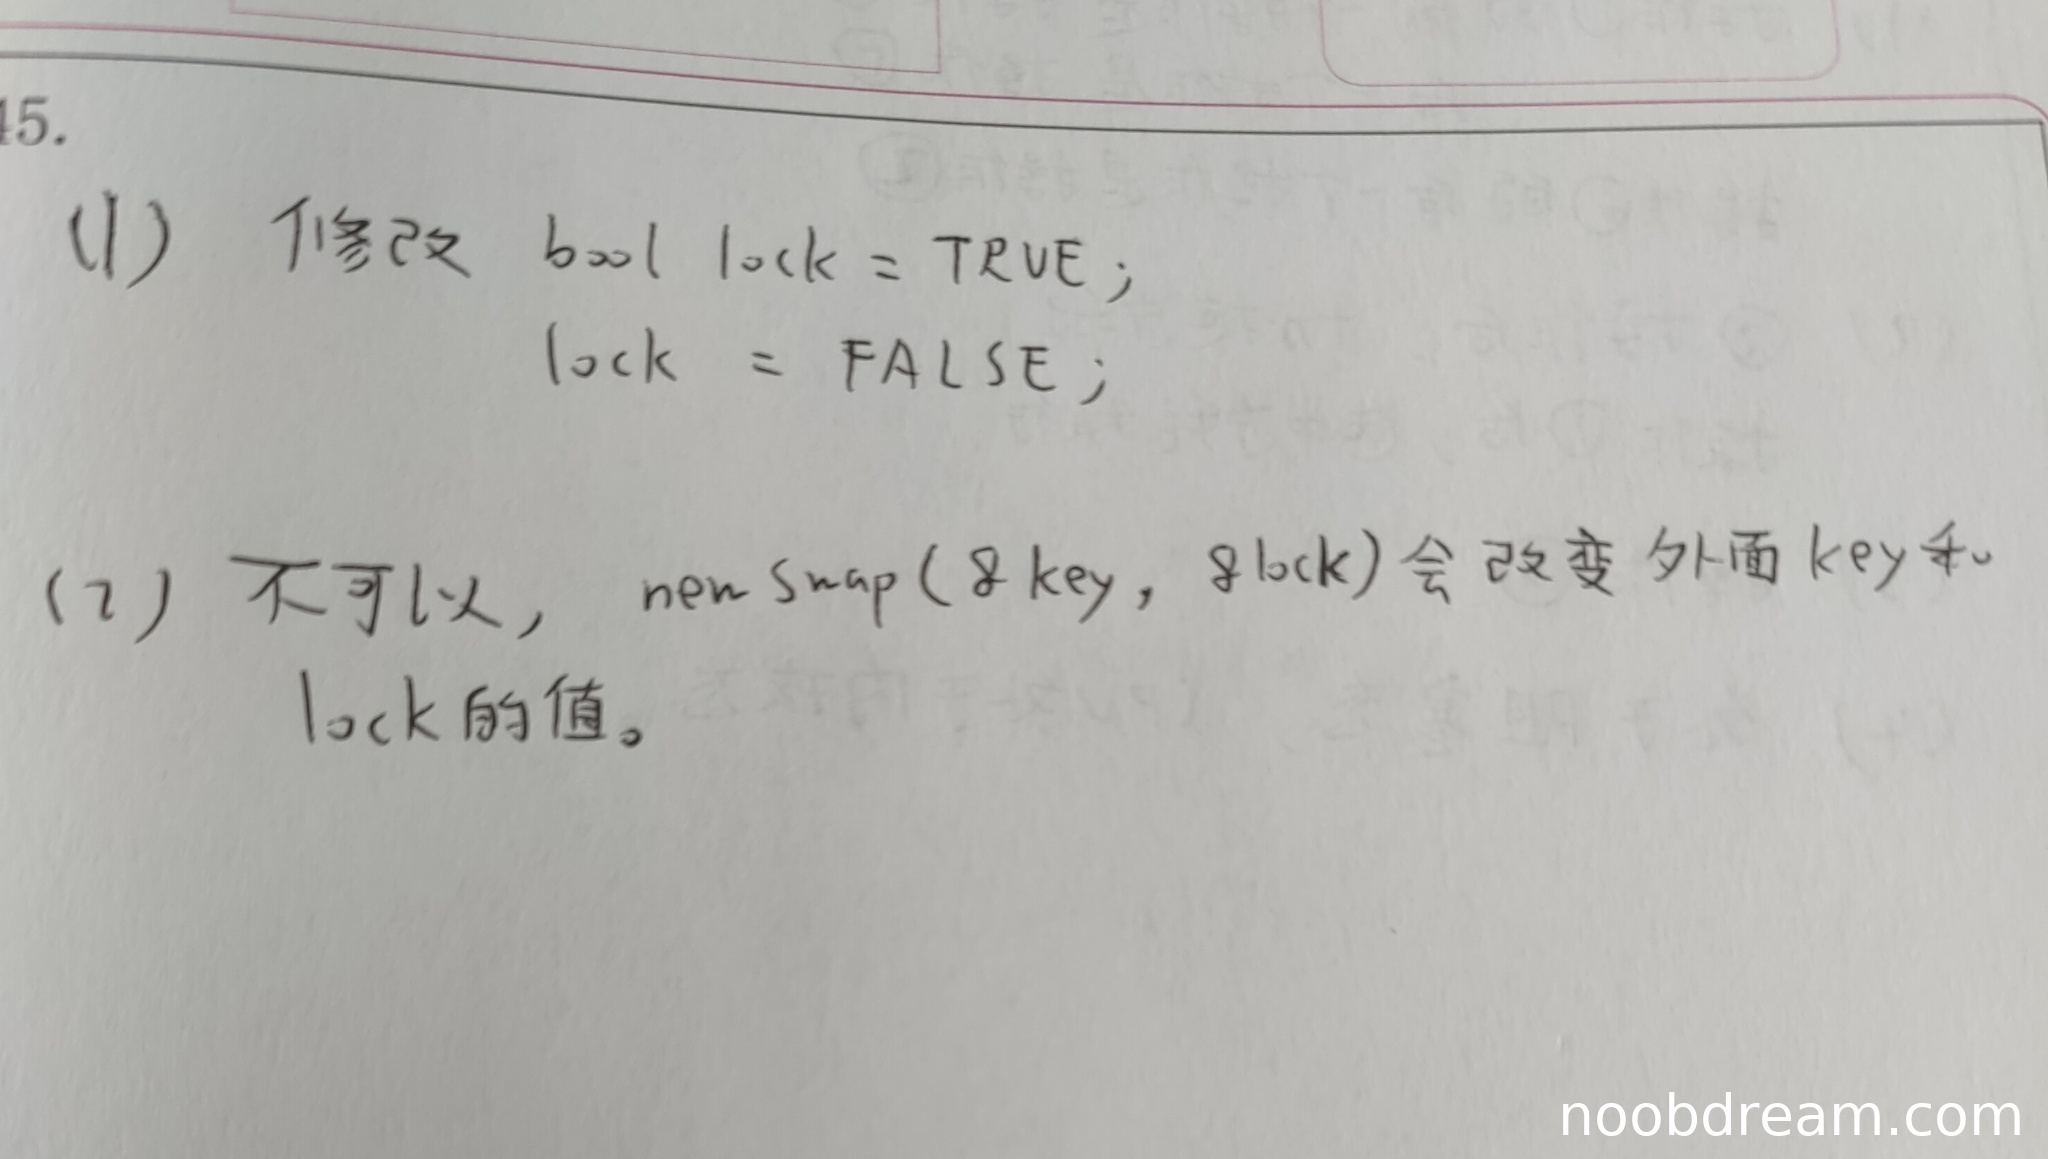 45.
(1) 修改 bool lock = TRUE;
lock = FALSE;
(2) 不可以, newSwap(&key, &lock)会改变外面key和
lock的值。
noobdream.com